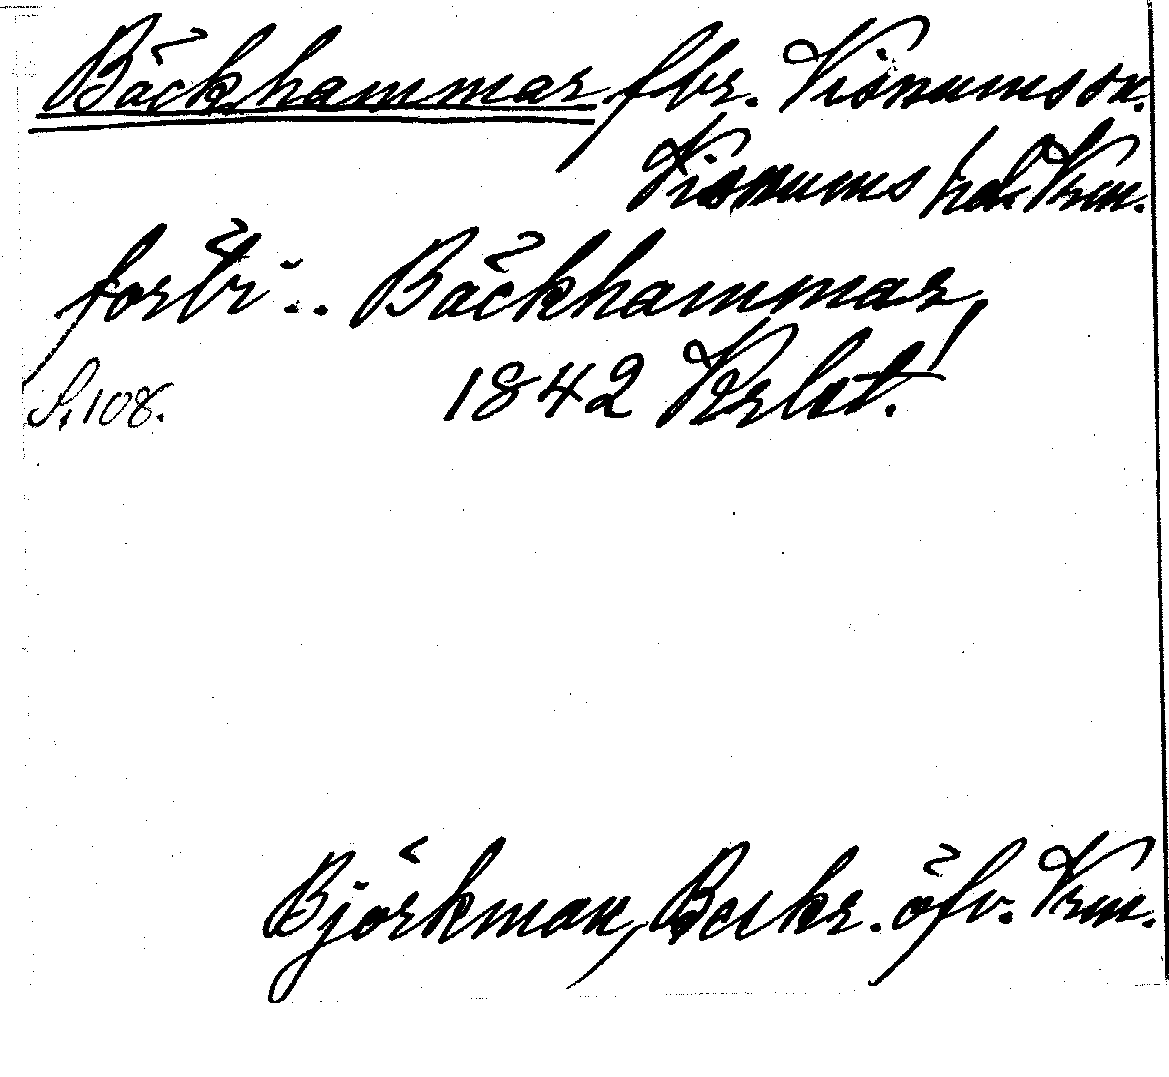 Bäckhammar fbr. Visnums sn.
Visnums hd. Vrm.
förbi .. Bäckhammar,
S. 108. 1842 Krlst.
Björkman, Beskr. öfv. Vrm.